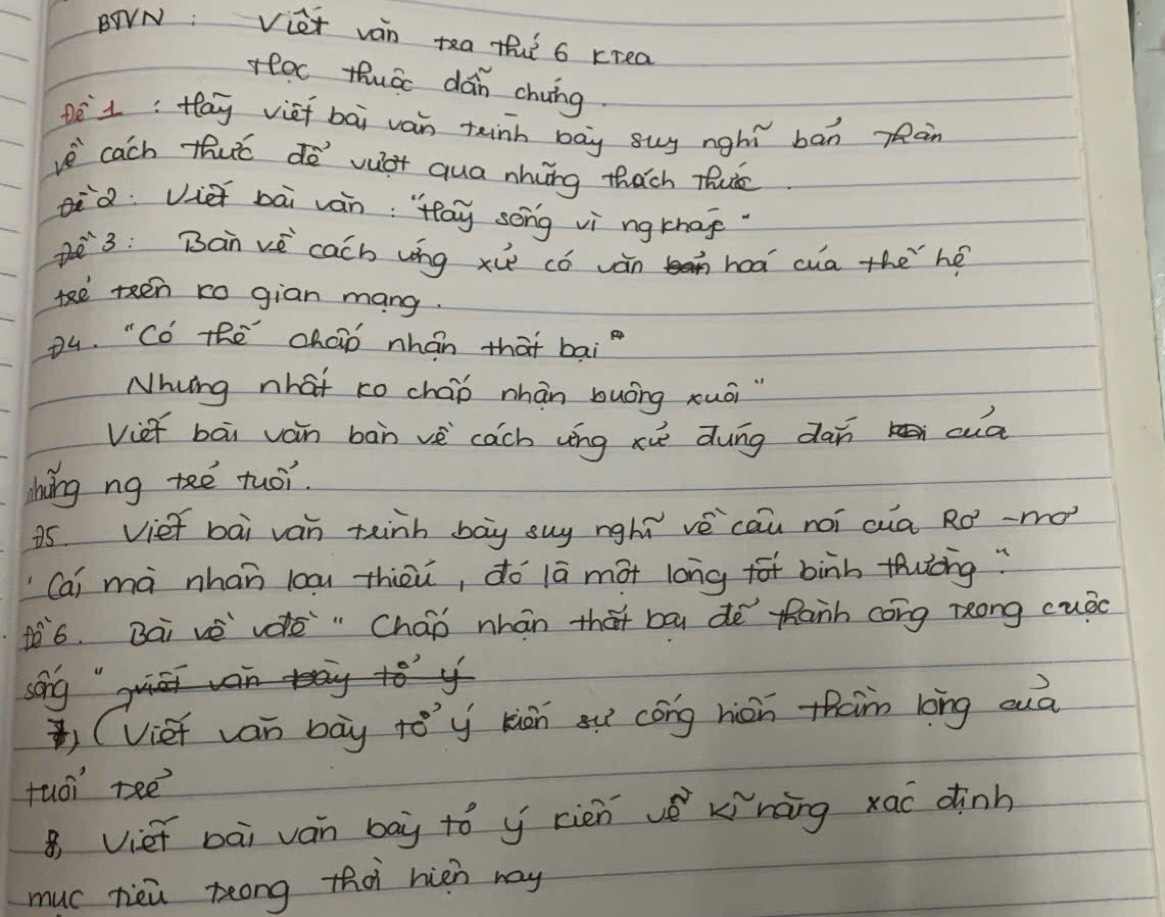 BTVN : Viết văn tra thứ 6 ktra
Học thuộc dẫn chứng.
Đề 1 : Hãy viết bài văn trình bày suy nghĩ bản thân
về cách thức để vượt qua những thách thức.
Đề 2: Viết bài văn : "Hãy sống vì ng khác"
Đề 3: Bàn về cách ứng xử có văn hoá của thế hệ
trẻ trên ko gian mạng.
Đ4. "Có thể chấp nhận thất bại"
Nhưng nhất ko chấp nhận buông xuôi"
Viết bài văn bàn về cách ứng xử đúng đắn của
những ng trẻ tuổi.
Đ5. Viết bài văn trình bày suy nghĩ về câu nói của Rơ -mơ
"Cái mà nhân loại thiếu, đó là một lòng tốt bình thường".
Đề 6. Bài về vđề "Chấp nhận thất bại để thành công trong cuộc
sống" viết văn bày tỏ ý
7, (Viết văn bày tỏ ý kiến sự cống hiến thầm lặng của
tuổi trẻ
8, Viết bài văn bày tỏ ý kiến về kĩ năng xác định
mục tiêu trong thời hiện nay